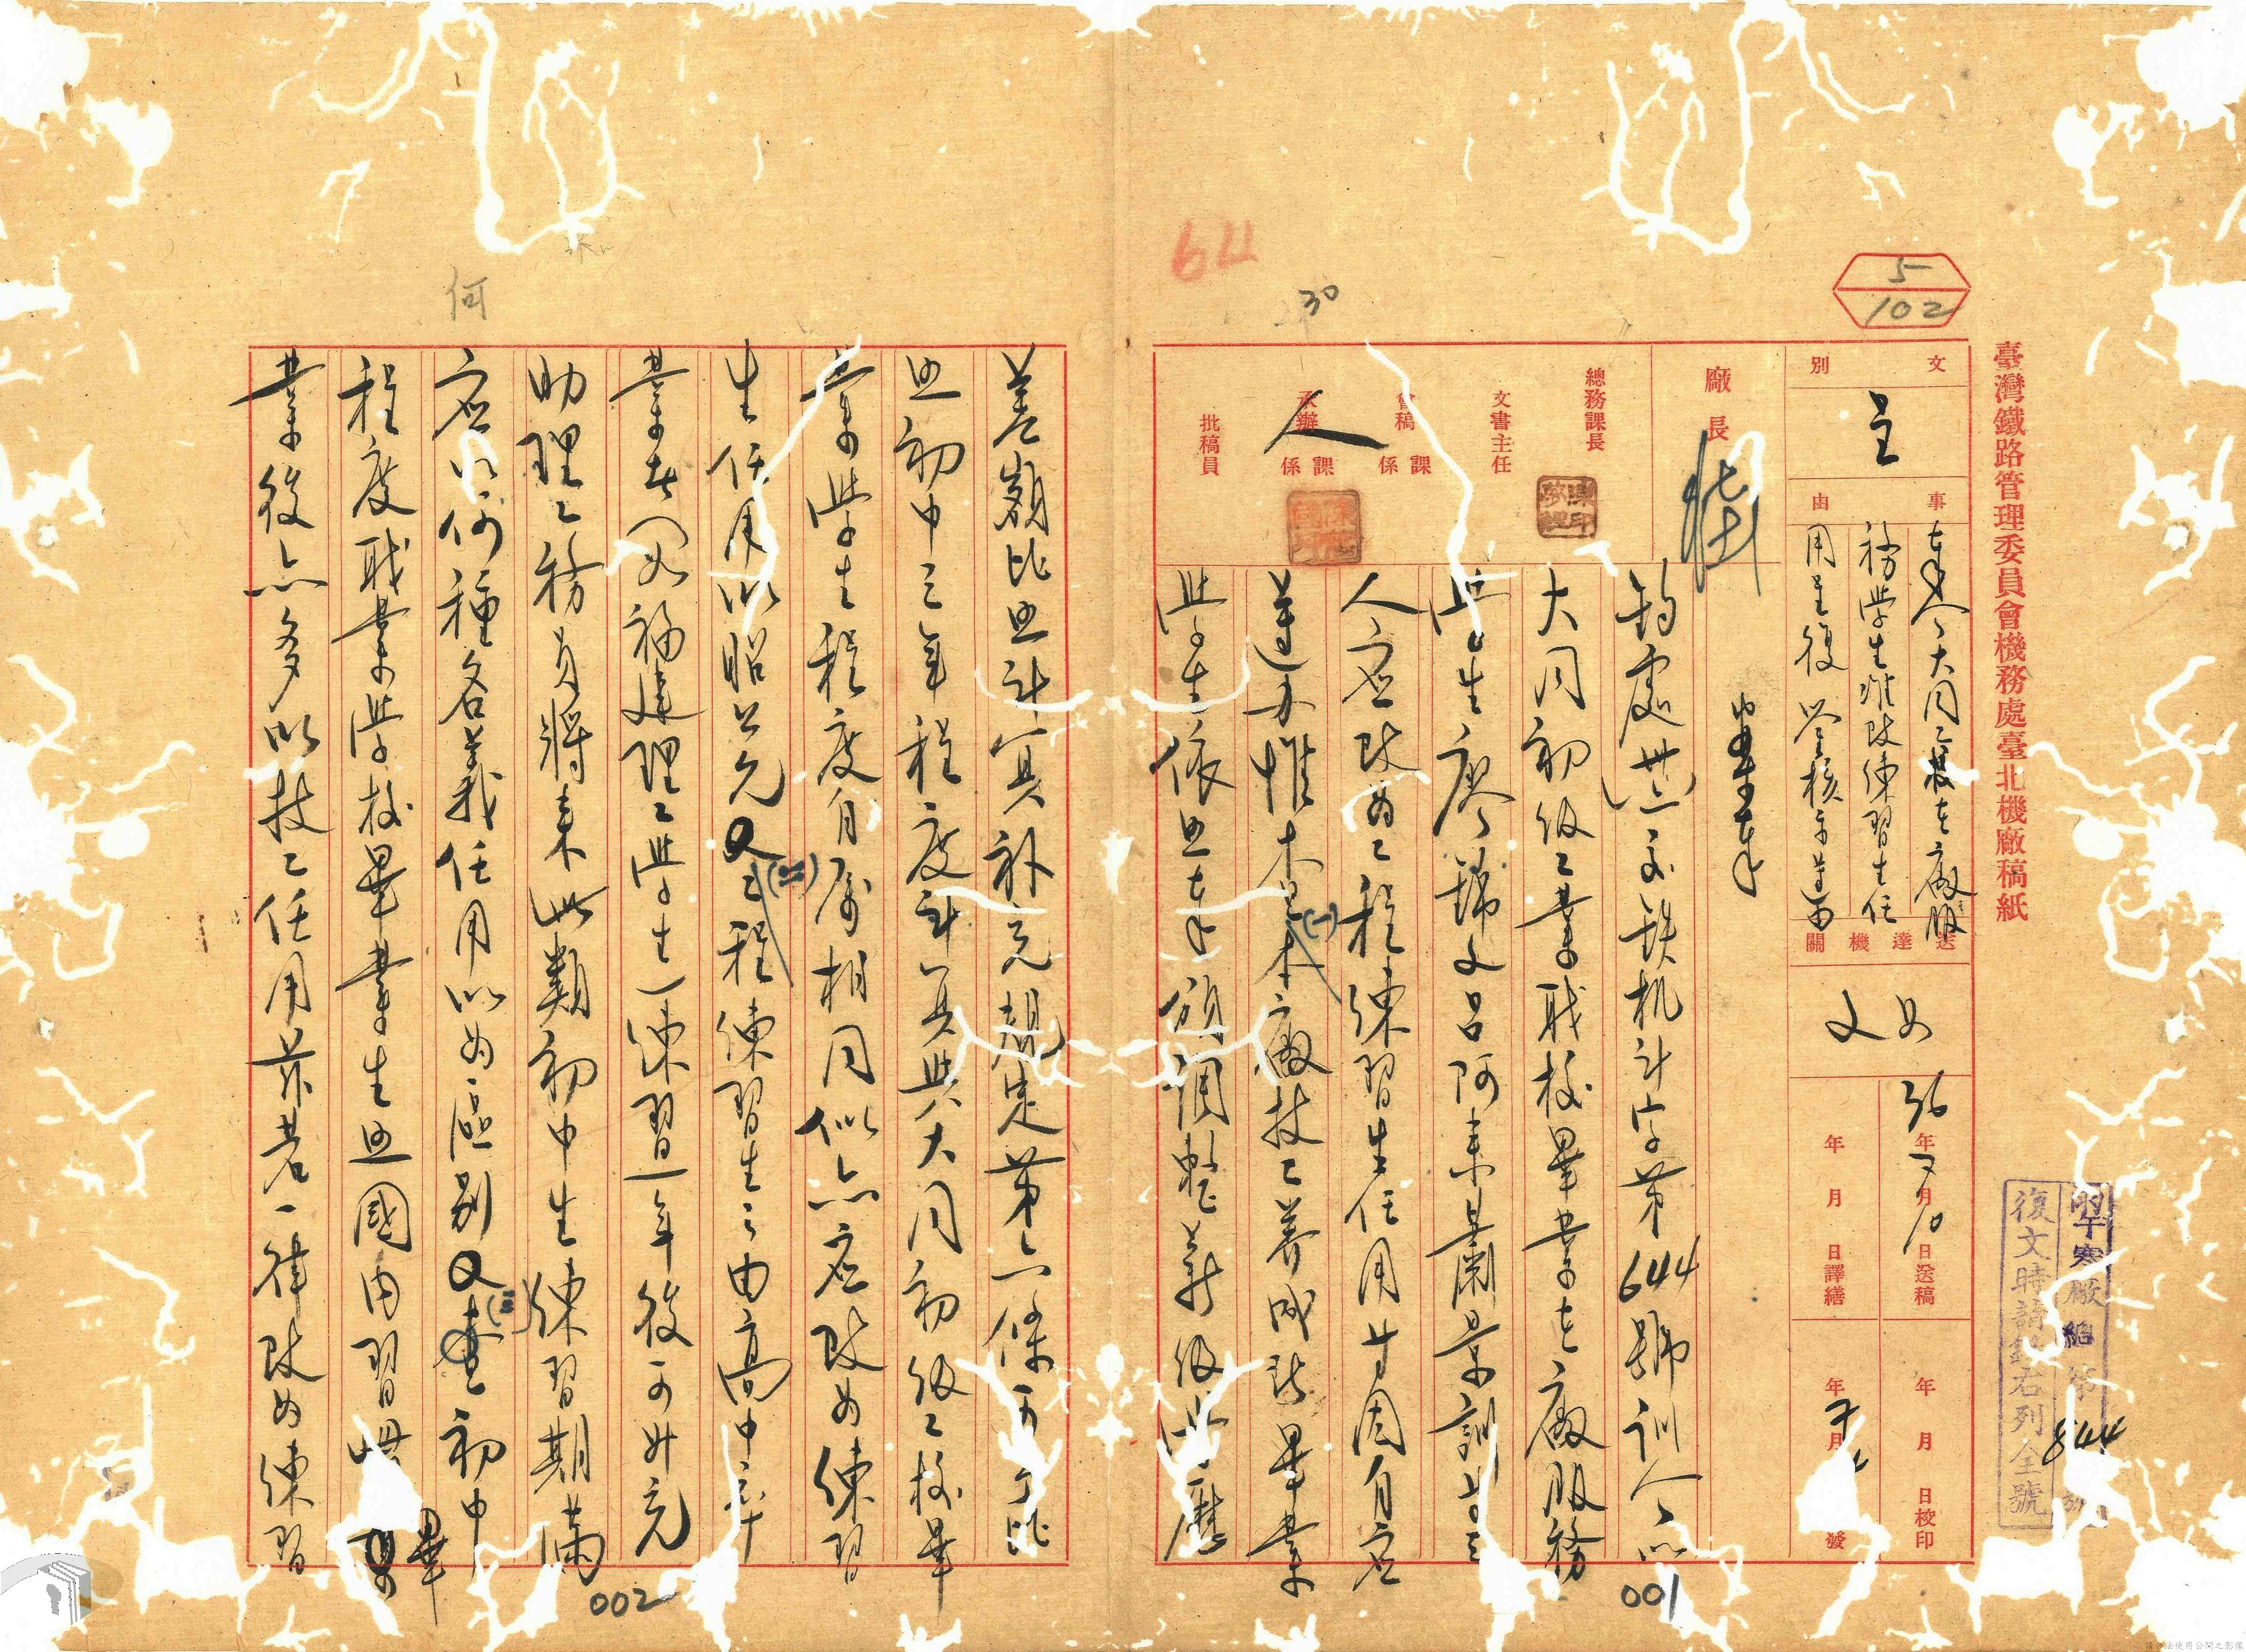 臺灣鐵路管理委員會機務處臺北機廠稿紙
5
102
文別
呈
事由
奉令大同工校在廠服
務學生准改練習生任
用呈復 鑒核示遵由
送達機關
如文
36年7月10日送稿
年月日譯繕
年月日校印
年月發
廠長
總務課長
文書主任
會稿
課係
承辦
課係
人
批稿員
64
30
復文時請
右列全號
844
案奉
鈞處世六交鉄机计字第644號訓令以
大同初級工業職校畢業在廠服務
學生廖錦文呂阿來蕭景訓等三
人應改為工程練習生任用等因自應
遵办惟本(一)本廠技工養成所畢業
學生依照奉頒調整薪級
001
差額比照計算補充規定第六條
照初中三年程度計算與大同初級工校畢
業學生程度自屬相同似亦應改為練習
生任用以昭公允又(二)工程練習生之由高中卒
業者(如福建理工學生)練習一年後可升充
助理工務員將來此類初中生練習期滿
應以何種名義任用以為區別又(三)查初中
程度職業學校畢業生照國內習慣畢
業後亦多以技工任用茲若一律改為練習
002
何